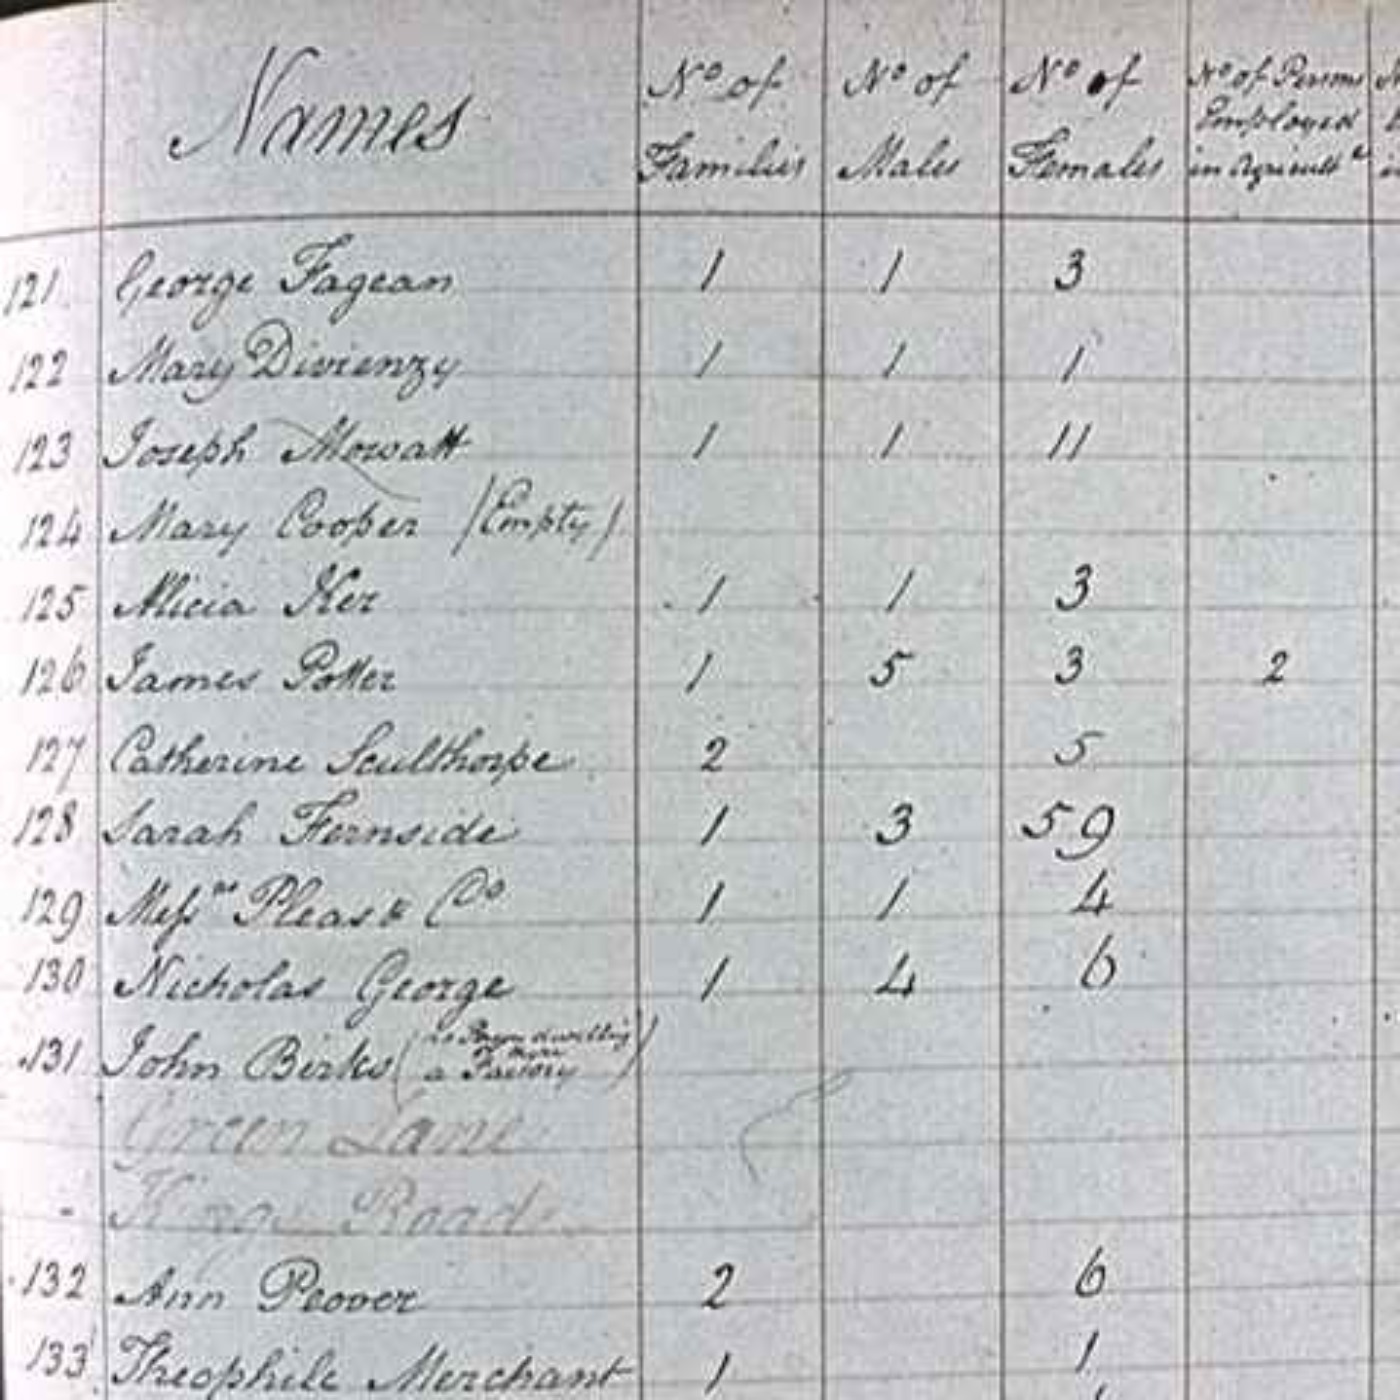 Names | No of Families | No of Males | No of Females | No of Persons Employed in Agricult
121 George Fagean 1 1 3
122 Mary Divienzy 1 1 1
123 Joseph Mowatt 1 1 11
124 Mary Cooper (Empty)
125 Alicia Ker 1 1 3
126 James Potter 1 5 3 2
127 Catherine Sculthorpe 2 5
128 Sarah Fernside 1 3 59
129 Messrs Pleas & Co 1 1 4
130 Nicholas George 1 4 6
131 John Birks (no Person dwelling a Factory)
Green Lane
Kings Road
132 Ann Peover 2 6
133 Theophile Merchant 1 1